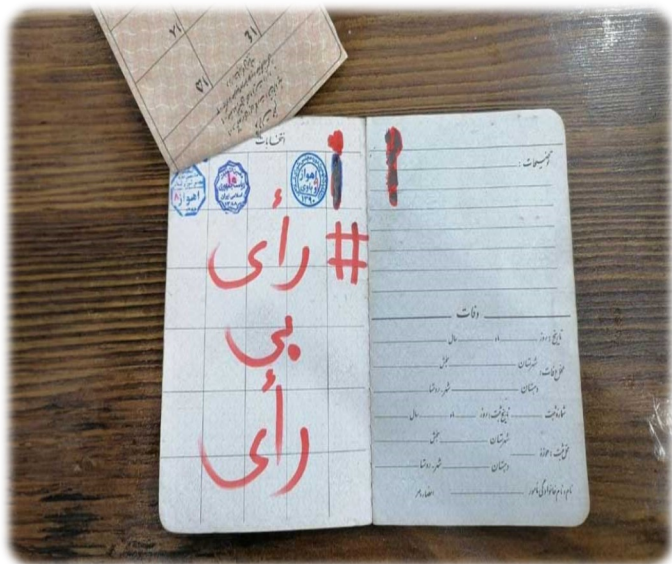 انتخابات
اهواز
اهواز
۱۳۹۰
# رأی
بی
رأی
توضیحات :
وفات
تاریخ : روز ماه سال
محل وفات : شهرستان بخش
دهستان شهر ـ روستا
شماره ثبت تاریخ ثبت : روز ماه سال
محل ثبت : حوزه شهرستان بخش
دهستان شهر ـ روستا
نام و نام خانوادگی مأمور امضاء و مهر